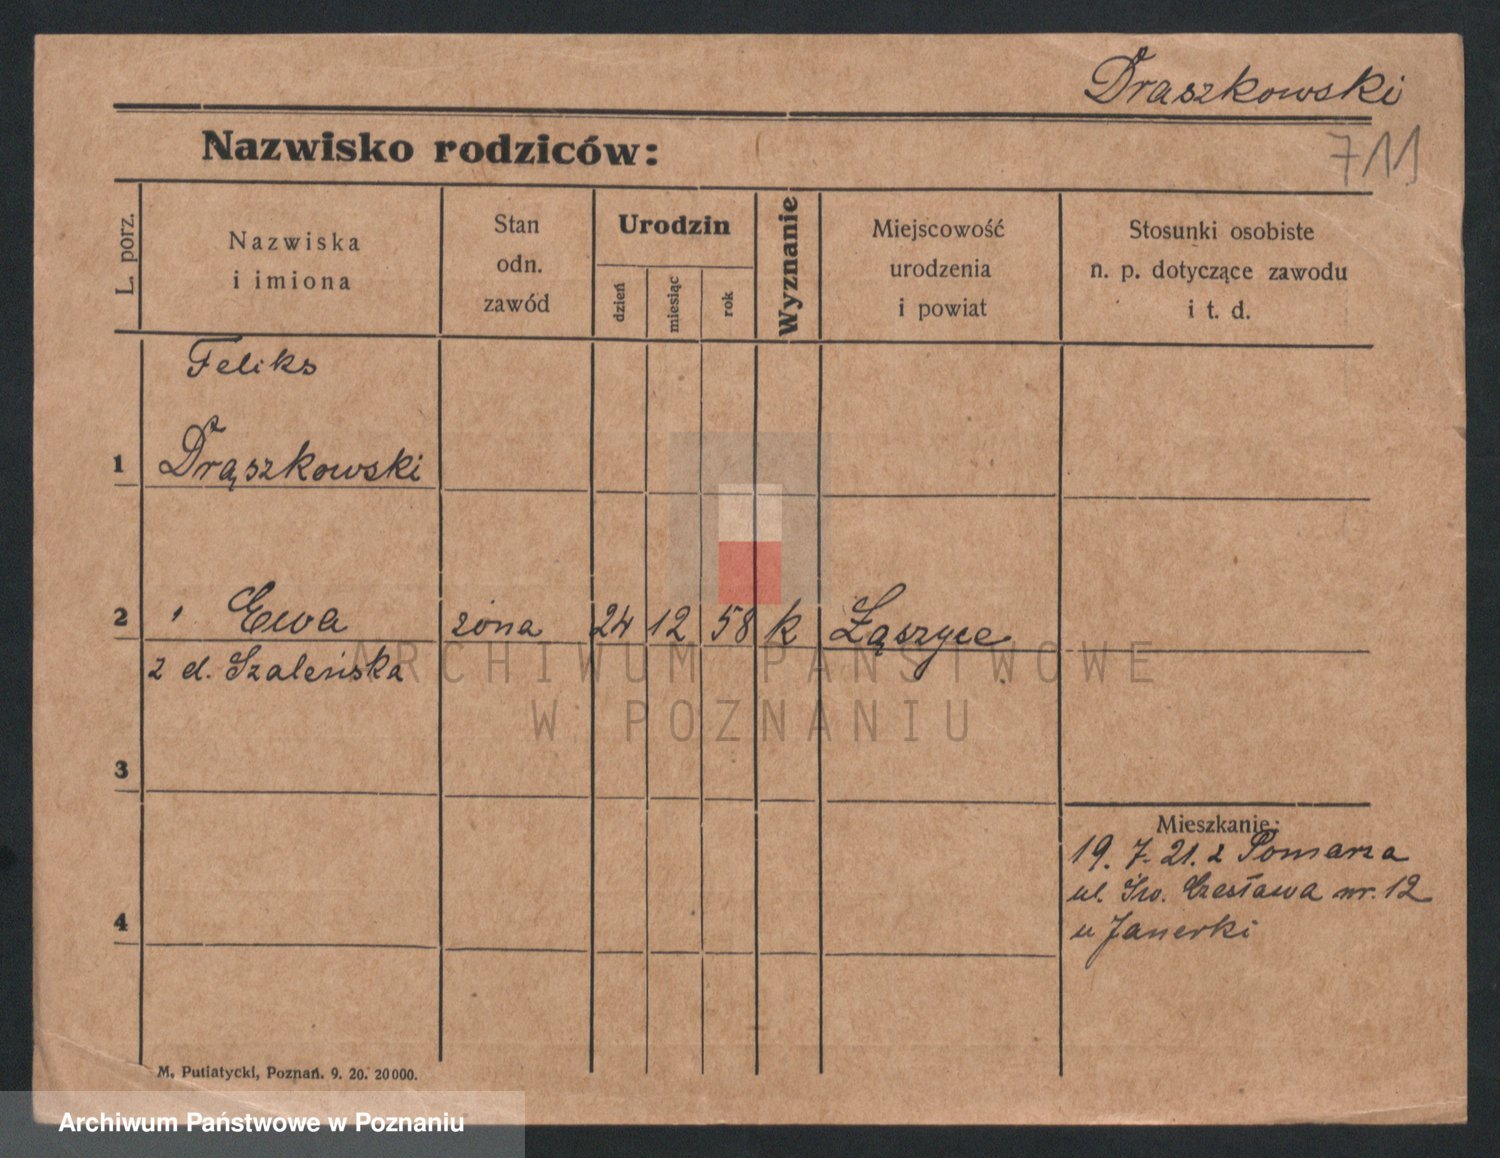 Draszkowski
Nazwisko rodziców:
711
L. porz.
Nazwiska
i imiona
Stan
odn.
zawód
Urodzin
dzień
miesiąc
rok
Wyznanie
Miejscowość
urodzenia
i powiat
Stosunki osobiste
n. p. dotyczące zawodu
i t. d.
Feliks
1 Drąszkowski
2 Ewa żona 24 12 58 k Łąszyce
z d. Szaleńska
ARCHIWUM PAŃSTWOWE
W POZNANIU
3
Mieszkanie:
19. 7. 21. z Pomarza
ul. Św. Czesława nr. 12
4
u Janerki
M. Putiatycki, Poznań. 9. 20. 20000.
Archiwum Państwowe w Poznaniu